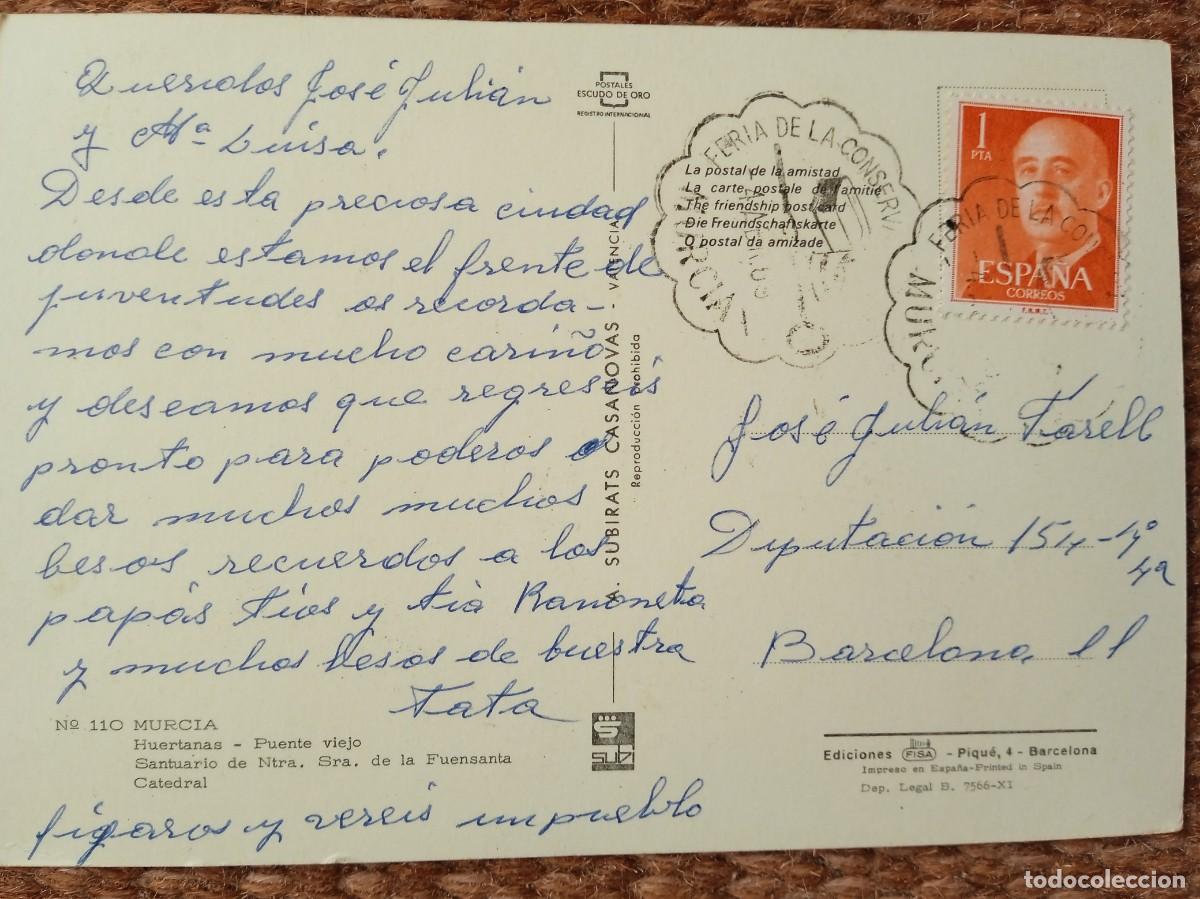 Queridos José Julián
y Mª Luisa.
Desde esta preciosa ciudad
donde estamos el frente de
juventudes os recorda-
mos con mucho cariño
y deseamos que regreséis
pronto para poderos
dar muchos muchos
besos recuerdos a los
papás tíos y tía Ranoneta
y muchos besos de buestra
Tata
Nº 110 MURCIA
Huertanas - Puente viejo
Santuario de Ntra. Sra. de la Fuensanta
Catedral
figaros y vereis un pueblo
POSTALES
ESCUDO DE ORO
REGISTRO INTERNACIONAL
A. SUBIRATS CASANOVAS - VALENCIA
Reproducción prohibida
subi
La postal de la amistad
La carte postale de l'amitié
The friendship post card
Die Freundschaftskarte
O postal da amizade
FERIA DE LA CONSERV
MURCIA
1
PTA
ESPAÑA
CORREOS
F.N.M.T.
FERIA DE LA CON
MURC
José Julián Farell
Diputación 154-1º
4ª
Barcelona. 11
Ediciones FISA - Piqué, 4 - Barcelona
Impreso en España-Printed in Spain
Dep. Legal B. 7566-XI
todocoleccion